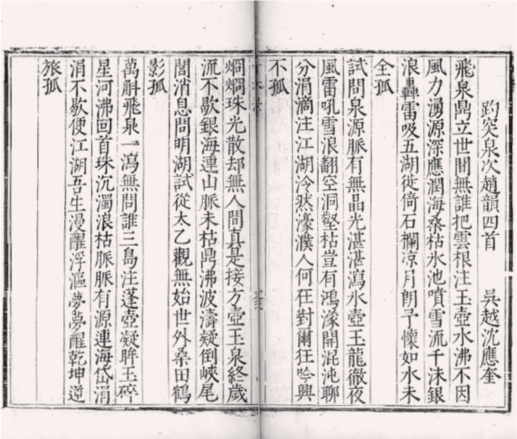 趵突泉次趙韻四首 吳越沈應奎
飛泉鼎立世間無誰把雲根注玉壺水沸不因
風力湧源深應潤海桑枯氷池噴雪流千沫銀
浪轟雷吸五湖徙倚石欄凉月朗予懷如水未
全孤
試問泉源脈有無晶光湛湛瀉氷壺玉龍徹夜
風雷吼雪浪翻空澗壑枯豈有鴻濛開混沌聊
分涓滴注江湖泠然濠濮人何在對爾狂吟興
不孤
烱烱珠光散却無人間真是接方壺玉泉終歲
流不歇銀海連山脈未枯鼎沸波濤疑倒峽尾
閭消息問明湖試從太乙觀無始世外桑田鶴
影孤
萬斛飛泉一瀉無問誰三島注蓬壺凝眸玉碎
星河沸回首珠沉濁浪枯脈脈有源連海岱涓
涓不歇便江湖吾生漫醒浮漚夢夢醒乾坤逆
旅孤